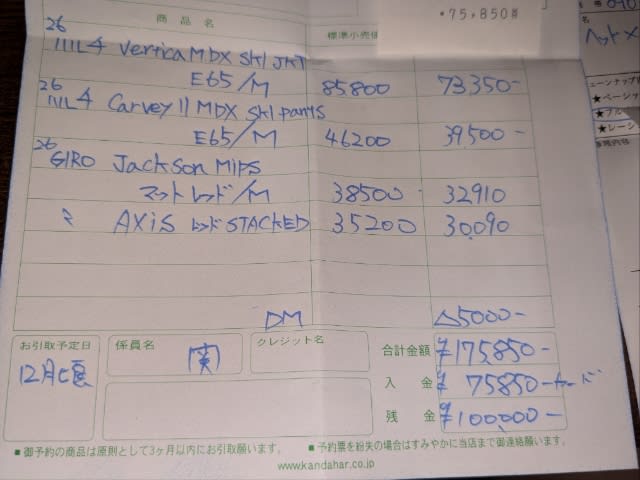 *75,850*
商品名 標準小売価
26
Vertica MDX SKI JKT
E65/M 85800 73350-
26
Carvey II MDX SKI pants
E65/M 46200 39,500-
26
GIRO Jackson MIPS
マットレッド/M 38500 32910
〃 AXiS レッドSTACKED 35200 30,090
DM △5000-
お引取予定日 係員名 クレジット名 合計金額 ¥175,850-
12月 入金 ¥75850-カード
残金 ¥100,000-
■御予約の商品は原則として3ヶ月以内にお引取願います。 ■予約票を紛失の場合はすみやかに当店まで御連絡願います。
www.kandahar.co.jp
名
ヘット
★ページ
★レー